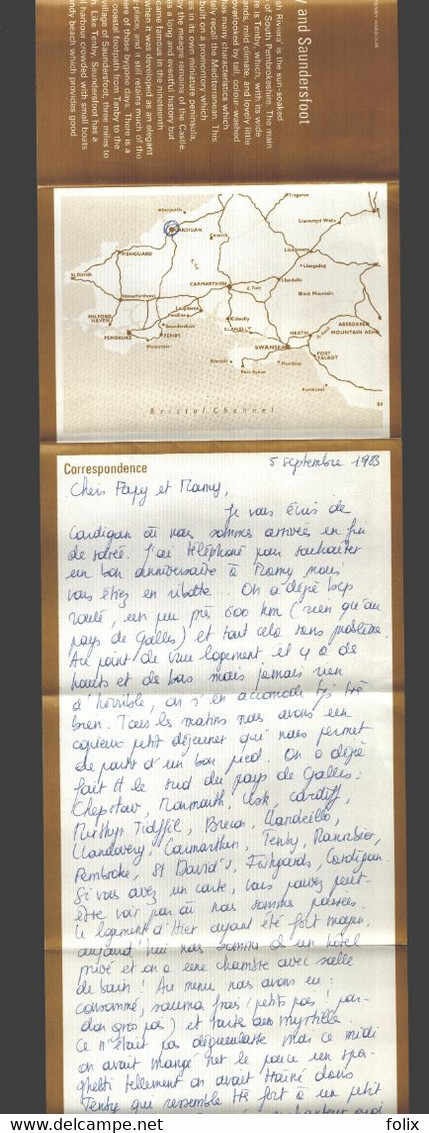 y and Saundersfoot
sh Riviera' is the sun-soaked
of South Pembrokeshire. The main
re is Tenby, which, with its wide
ands, mild climate, and lovely little
overlooked by tall, colour-washed
has many characteristics which
ly recall the Mediterranean. This
built on a promontory which
es in its own miniature peninsula,
by the meagre remains of the Castle.
as a long and eventful history but
came famous in the nineteenth
when it was developed as an elegant
place, and it still retains much of the
ere of those bygone days. There is a
coastal footpath from Tenby to the
village of Saundersfoot, three miles to
h. Like Tenby, Saundersfoot has a
l harbour crowded with small boats
ndy beach which provides good
Tregaron
Aberporth
CARDIGAN
Llanwrtyd Wells
FISHGUARD
Llandovery
St Davids
Llangadog
Llandeilo
CARMARTHEN
R. Towy
Black Mountain
Haverfordwest
Laugharne
Pendine
MILFORD HAVEN
Saundersfoot
Kidwelly
LLANELLY
PEMBROKE
TENBY
Manorbier
NEATH
ABERDARE
MOUNTAIN ASH
SWANSEA
PORT TALBOT
Mumbles
Port Eynon
Porthcawl
Bristol Channel
Correspondence
5 septembre 1983
Chers Papy et Mamy,
Je vous écris de
Cardigan où nous sommes arrivés en fin
de soirée. J'ai téléphoné pour souhaiter
un bon anniversaire à Mamy mais
vous étiez en ribotte.. On a déjà bcp
roulé, un peu près 600 km (rien qu'au
pays de Galles) et tout cela sans problème.
Au point de vue logement il y a de
hauts et de bas mais jamais rien
d'horrible, on s'en accomode tjs très
bien. Tous les matins nous avons un
copieux petit déjeuner qui nous permet
de partir d'un bon pied. On a déjà
fait tt le sud du pays de Galles:
Chepstow, Monmouth, Usk, Cardiff,
Merthyr Tidffil, Brecon, Llandeilo,
Llandovery, Carmarthen, Tenby, Manorbier,
Pembroke, St David's, Fishguards, Cardigan.
Si vous avez un carte, vous pouvez peut-
être voir par où nous sommes passés.
Le logement d'hier ayant été fort moyen,
aujourd'hui nous sommes ds un hôtel
privé et on a une chambre avec salle
de bain! Au menu nous avons eu:
consommé, saumon frais (petits pois! par-
don gros pois) et tarte aux myrtilles.
Ce n'était pas dégueulasse mais ce midi
on avait mangé sur le pouce un spa-
ghetti tellement on avait traîné dans
Tenby qui ressemble très fort à un petit
https://www.delcampe.net
folix